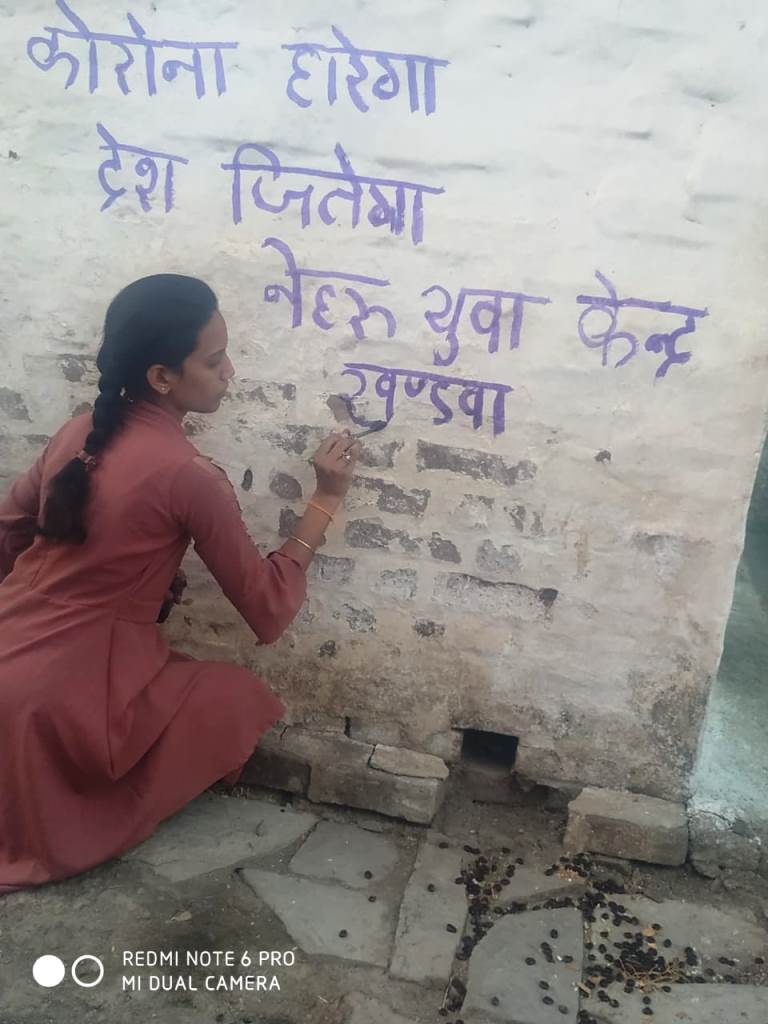 कोरोना हारेगा
देश जितेगा
नेहरू युवा केन्द्र
खण्डवा
REDMI NOTE 6 PRO
MI DUAL CAMERA